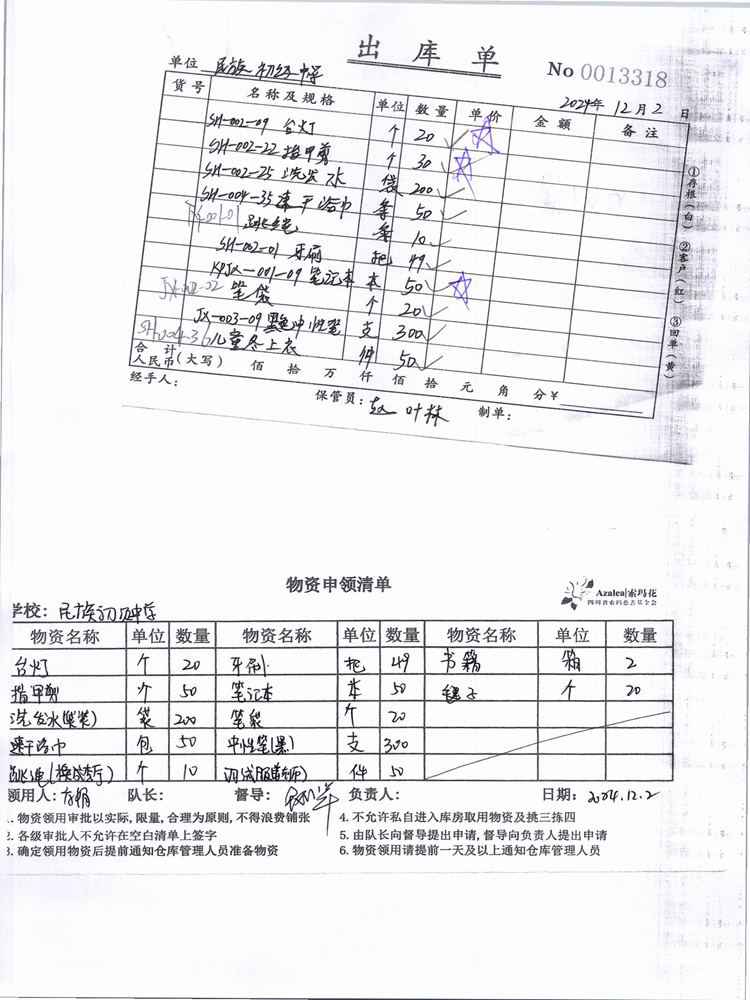 出 库 单
No 0013318
单位 民族初级中学
2024年 12月 2 日
货号 名称及规格 单位 数量 单价 金额 备注
SH-002-09 台灯 个 20
SH-002-22 指甲剪 个 30
SH-002-25 洗发水 袋 200
SH-004-35 速干浴巾 条 50
跳绳 条 10
SH-002-01 牙刷 把 49
KPJX-001-09 笔记本 本 50
笔袋 个 20
JX-003-09 黑色中性笔 支 300
儿童冬上衣 件 50
合 计
人民币(大写) 佰 拾 万 仟 佰 拾 元 角 分 ¥
经手人: 保管员: 赵叶林 制单:
①存根(白) ②客户(红) ③回单(黄)
物资申领清单
Azalea|索玛花
四川省索玛慈善基金会
学校: 民族初级中学
物资名称 单位 数量 物资名称 单位 数量 物资名称 单位 数量
台灯 个 20 牙刷 把 49 书籍 箱 2
指甲剪 个 50 笔记本 本 50 毽子 个 20
洗发水(袋装) 袋 200 笔袋 个 20
速干浴巾 包 50 中性笔(黑) 支 300
个 10 件 50
领用人: 队长: 督导: 负责人: 日期: 2024.12.2
1. 物资领用审批以实际, 限量, 合理为原则, 不得浪费铺张 4. 不允许私自进入库房取用物资及挑三拣四
2. 各级审批人不允许在空白清单上签字 5. 由队长向督导提出申请, 督导向负责人提出申请
3. 确定领用物资后提前通知仓库管理人员准备物资 6. 物资领用请提前一天及以上通知仓库管理人员